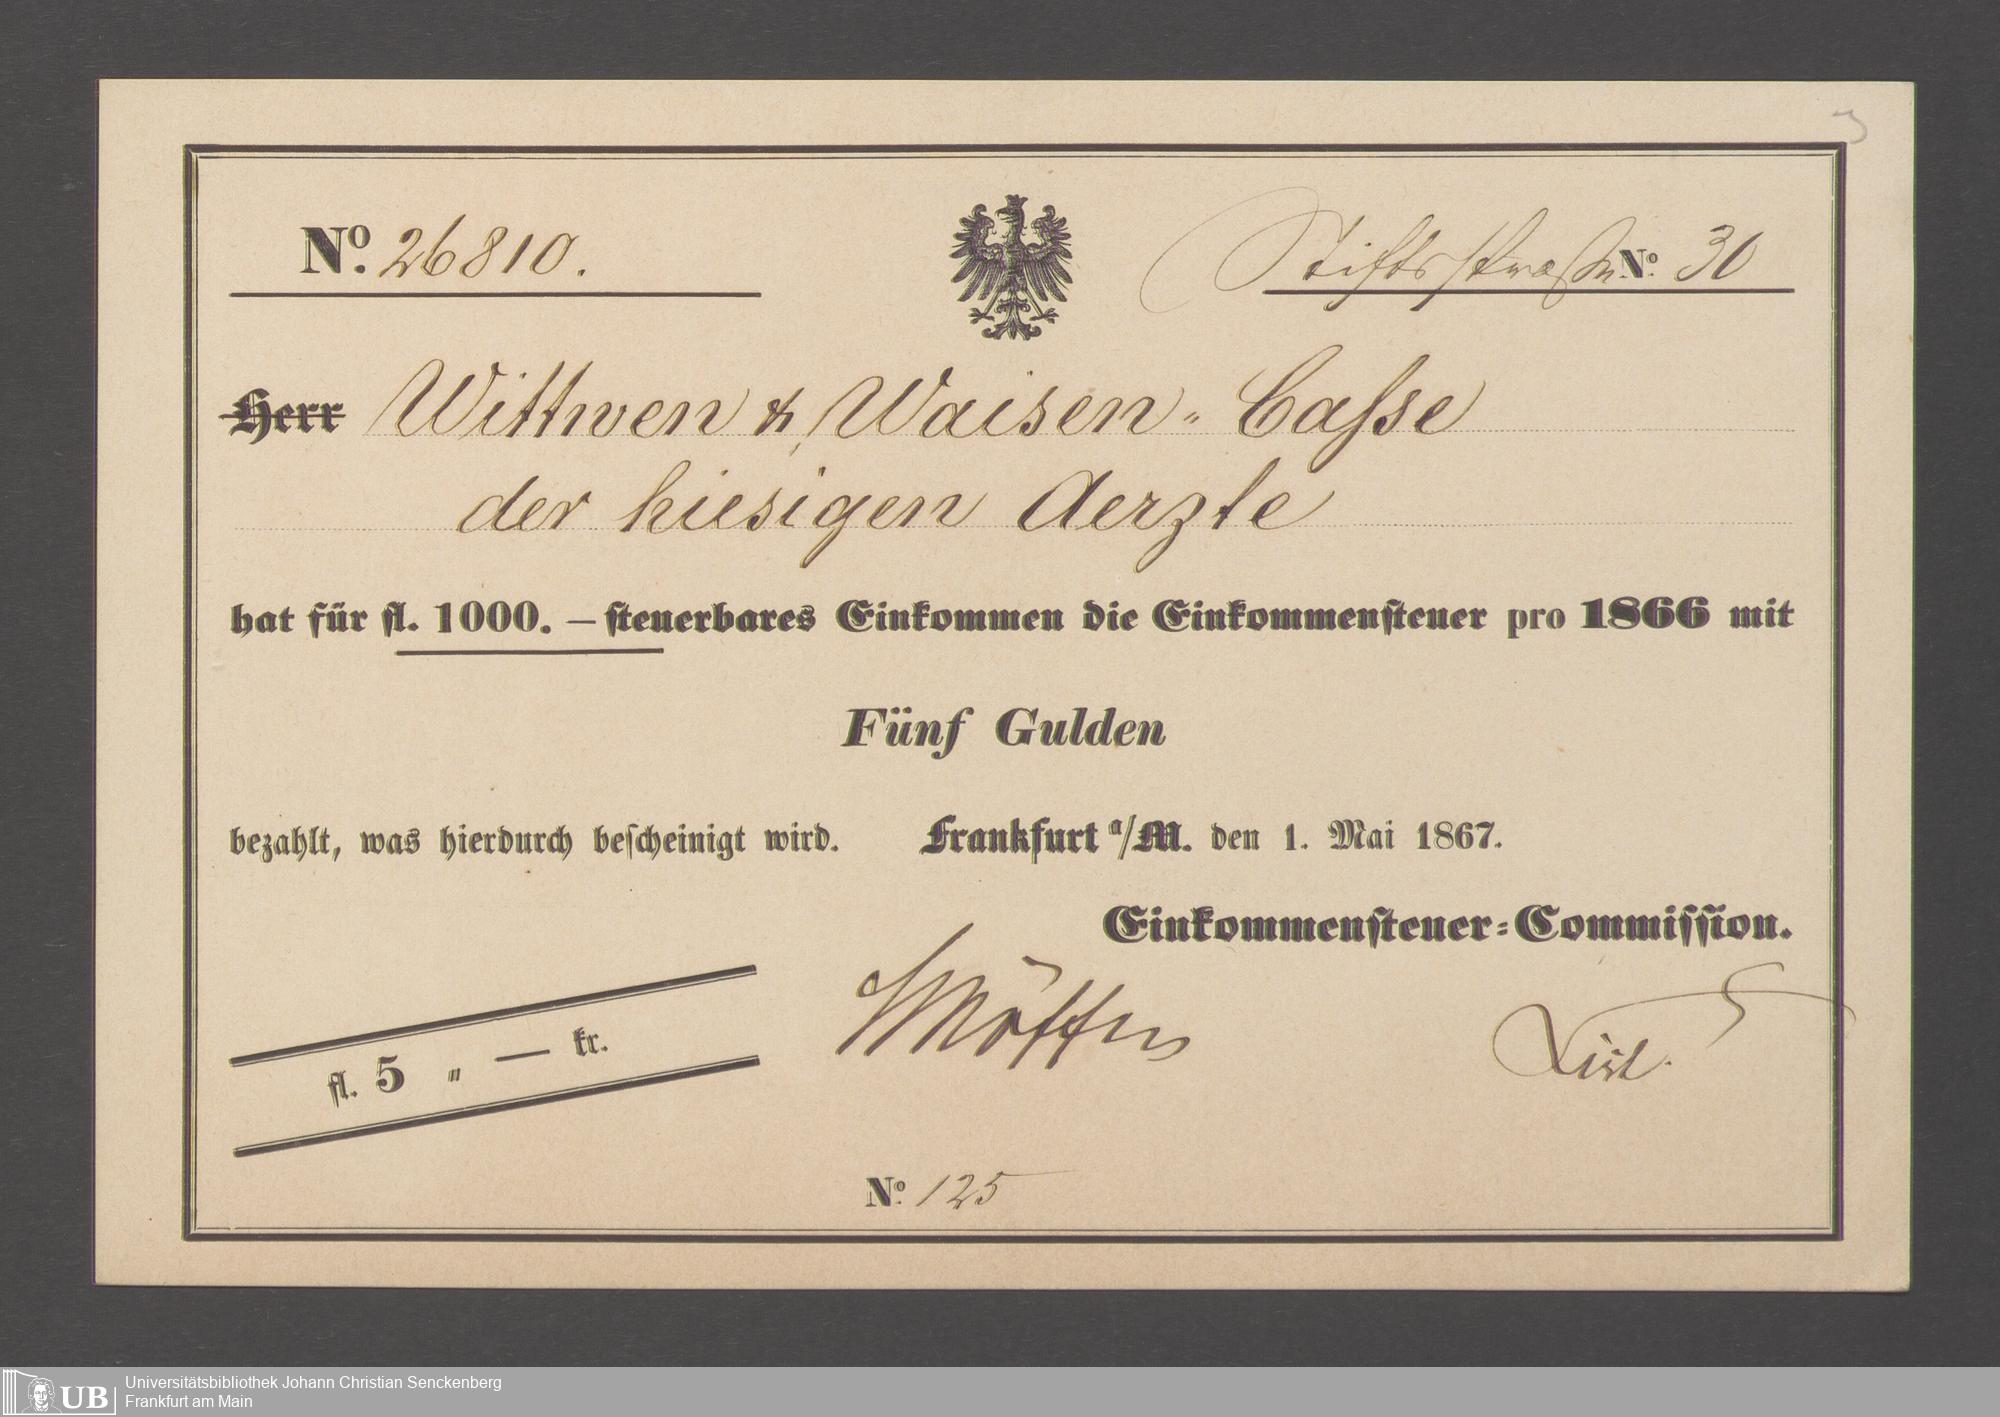 No. 26810.
Stiftsstraße No. 30
Herr Wittwen & Waisen-Casse
der hiesigen Aerzte
hat für fl. 1000. — steuerbares Einkommen die Einkommensteuer pro 1866 mit
Fünf Gulden
bezahlt, was hierdurch bescheinigt wird. Frankfurt a/M. den 1. Mai 1867.
Einkommensteuer-Commission.
fl. 5 „ — kr.
No. 125
3
UB Universitätsbibliothek Johann Christian Senckenberg
Frankfurt am Main